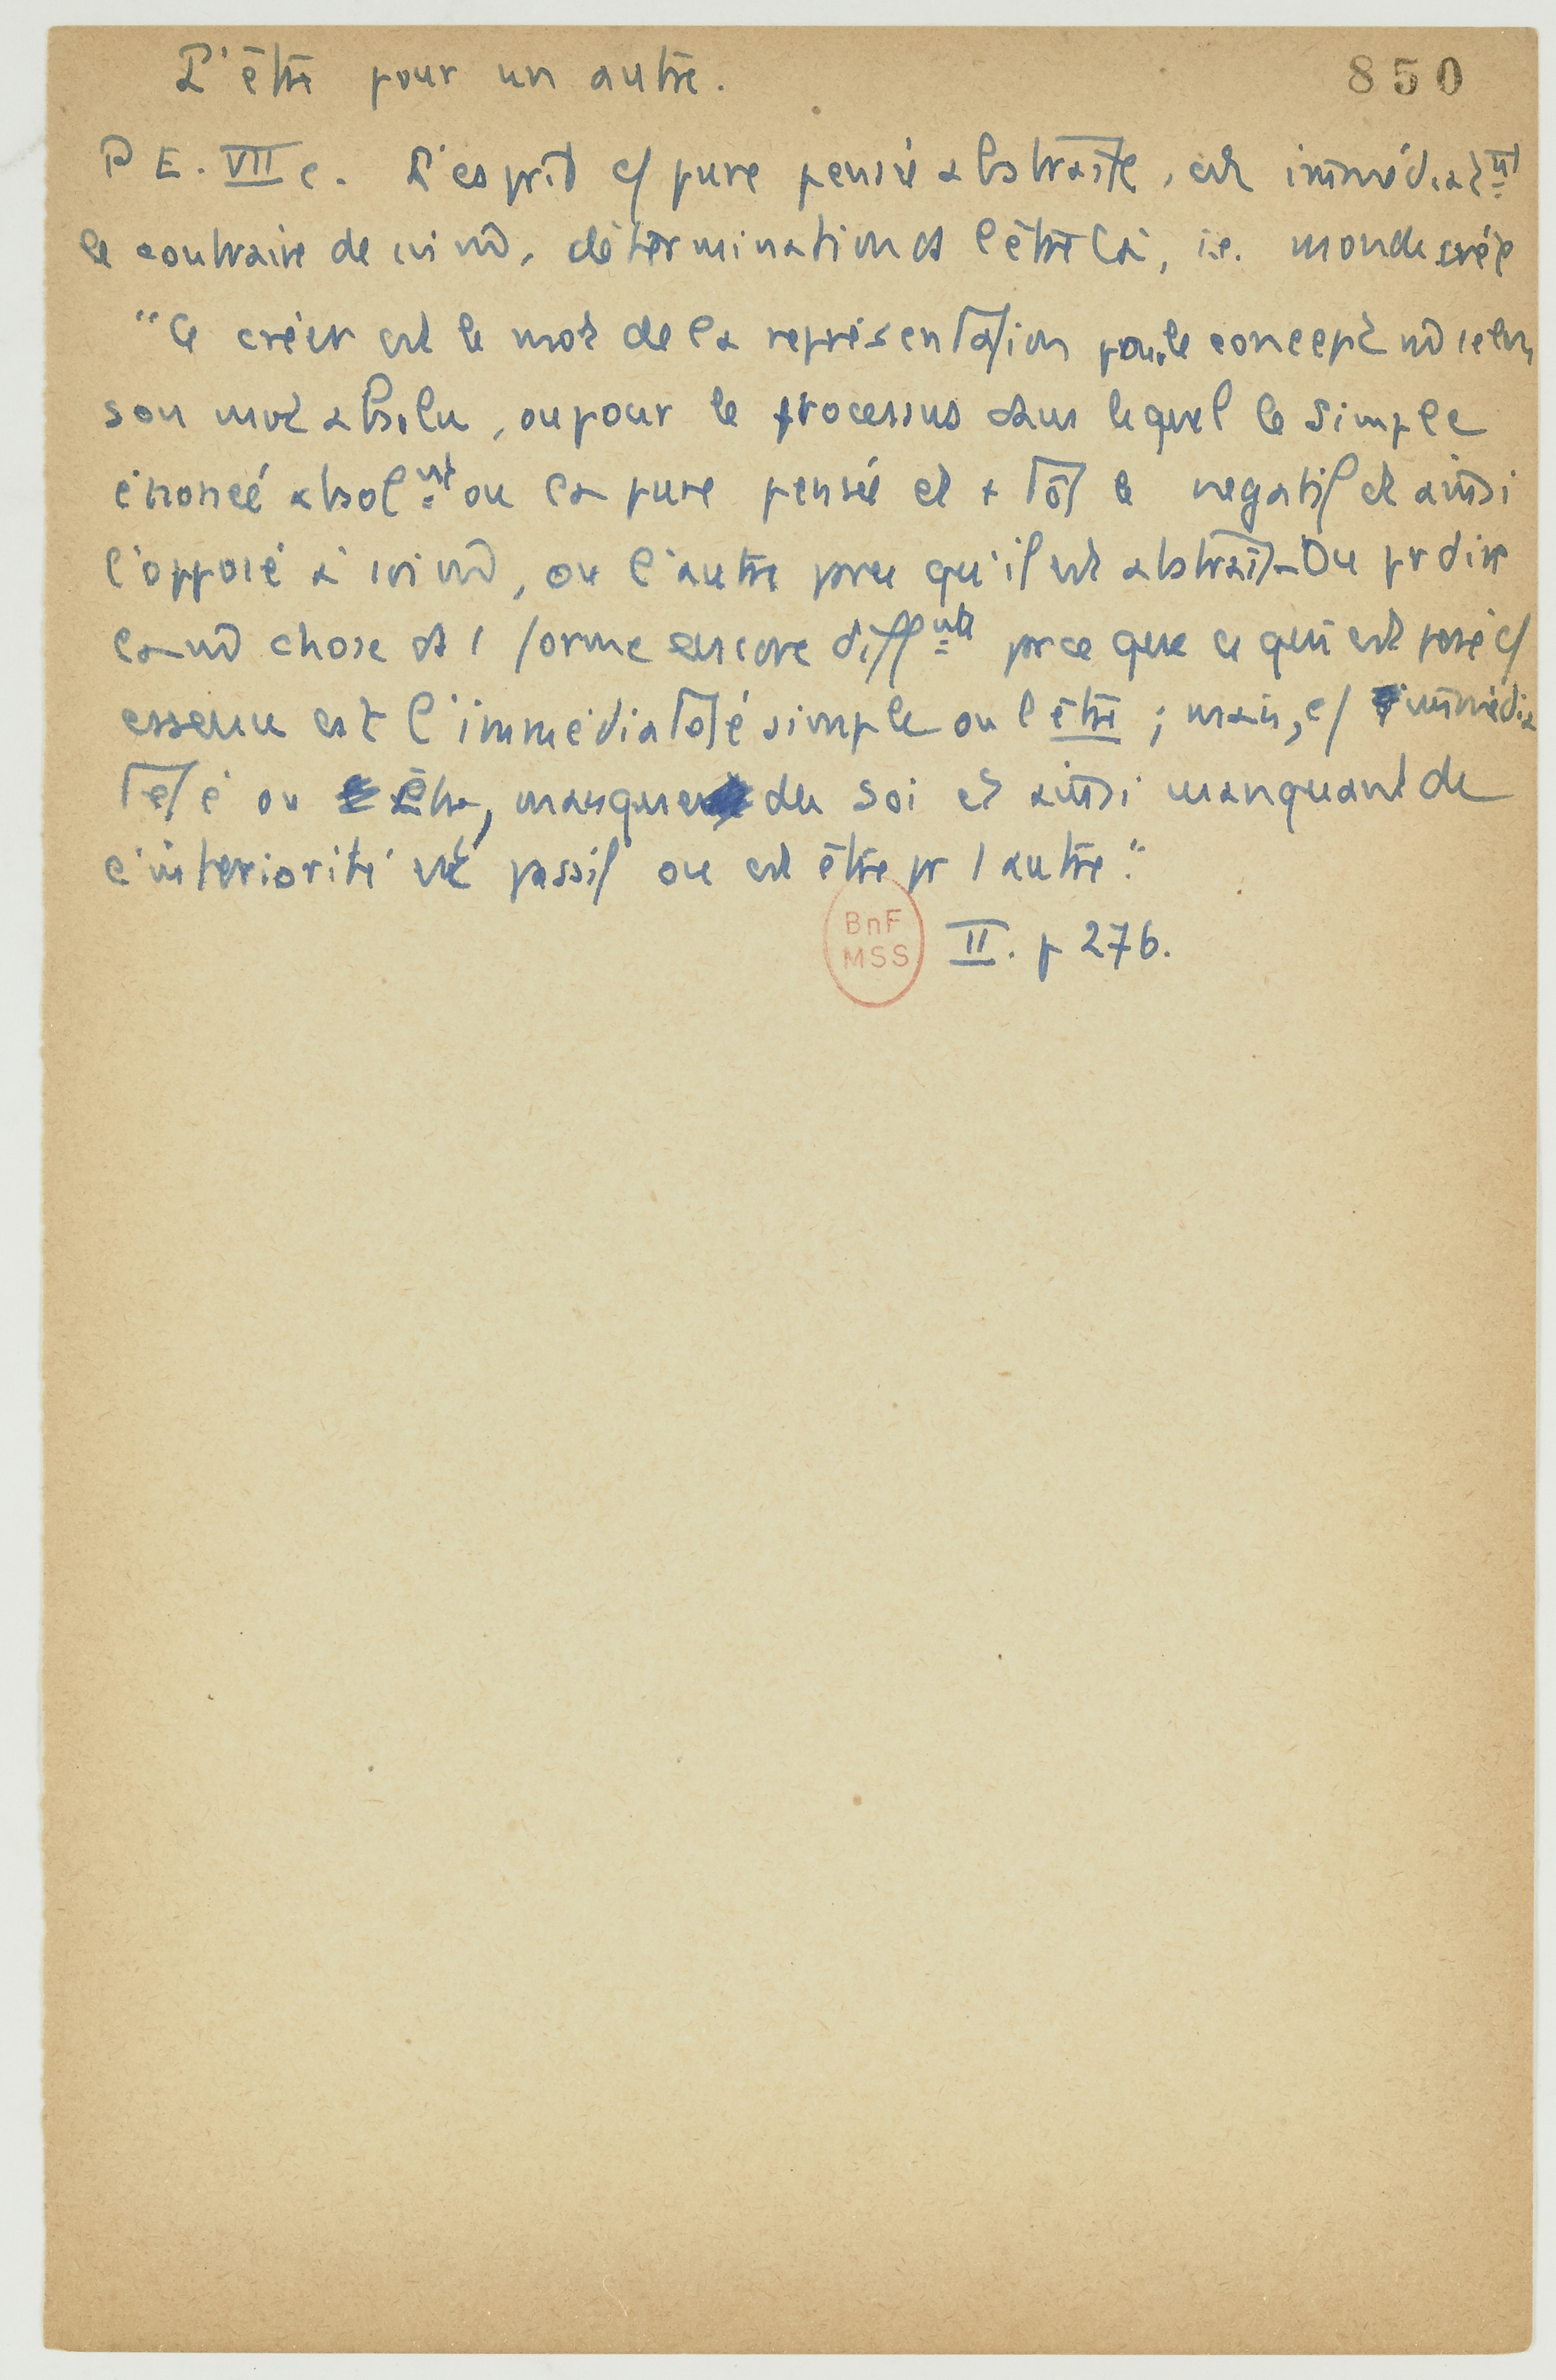 L'être pour un autre.
850
P E. VII c. L'esprit c/ pure pensée abstraite, est immédiatmt
le contraire de soi m̂, détermination et l'être là, i.e. monde créé
"Ce créer est le mot de la représentation pour le concept m̂ selon
son mvt absolu, ou pour le processus dans lequel le simple
énoncé absolmt ou la pure pensée est a tôt le negatif et ainsi
l'opposé à soi m̂, ou l'autre parce qu'il est abstrait - Ou pr dire
la m̂ chose ds 1 forme encore diffnte parce que ce qui est posé c/
essence est l'immédiateté simple ou l'être ; mais, c/ immédia
teté ou être, manque du Soi et ainsi manquant de
l'interiorité est passif ou est être pr 1 autre."
BnF
MSS
II. p 276.